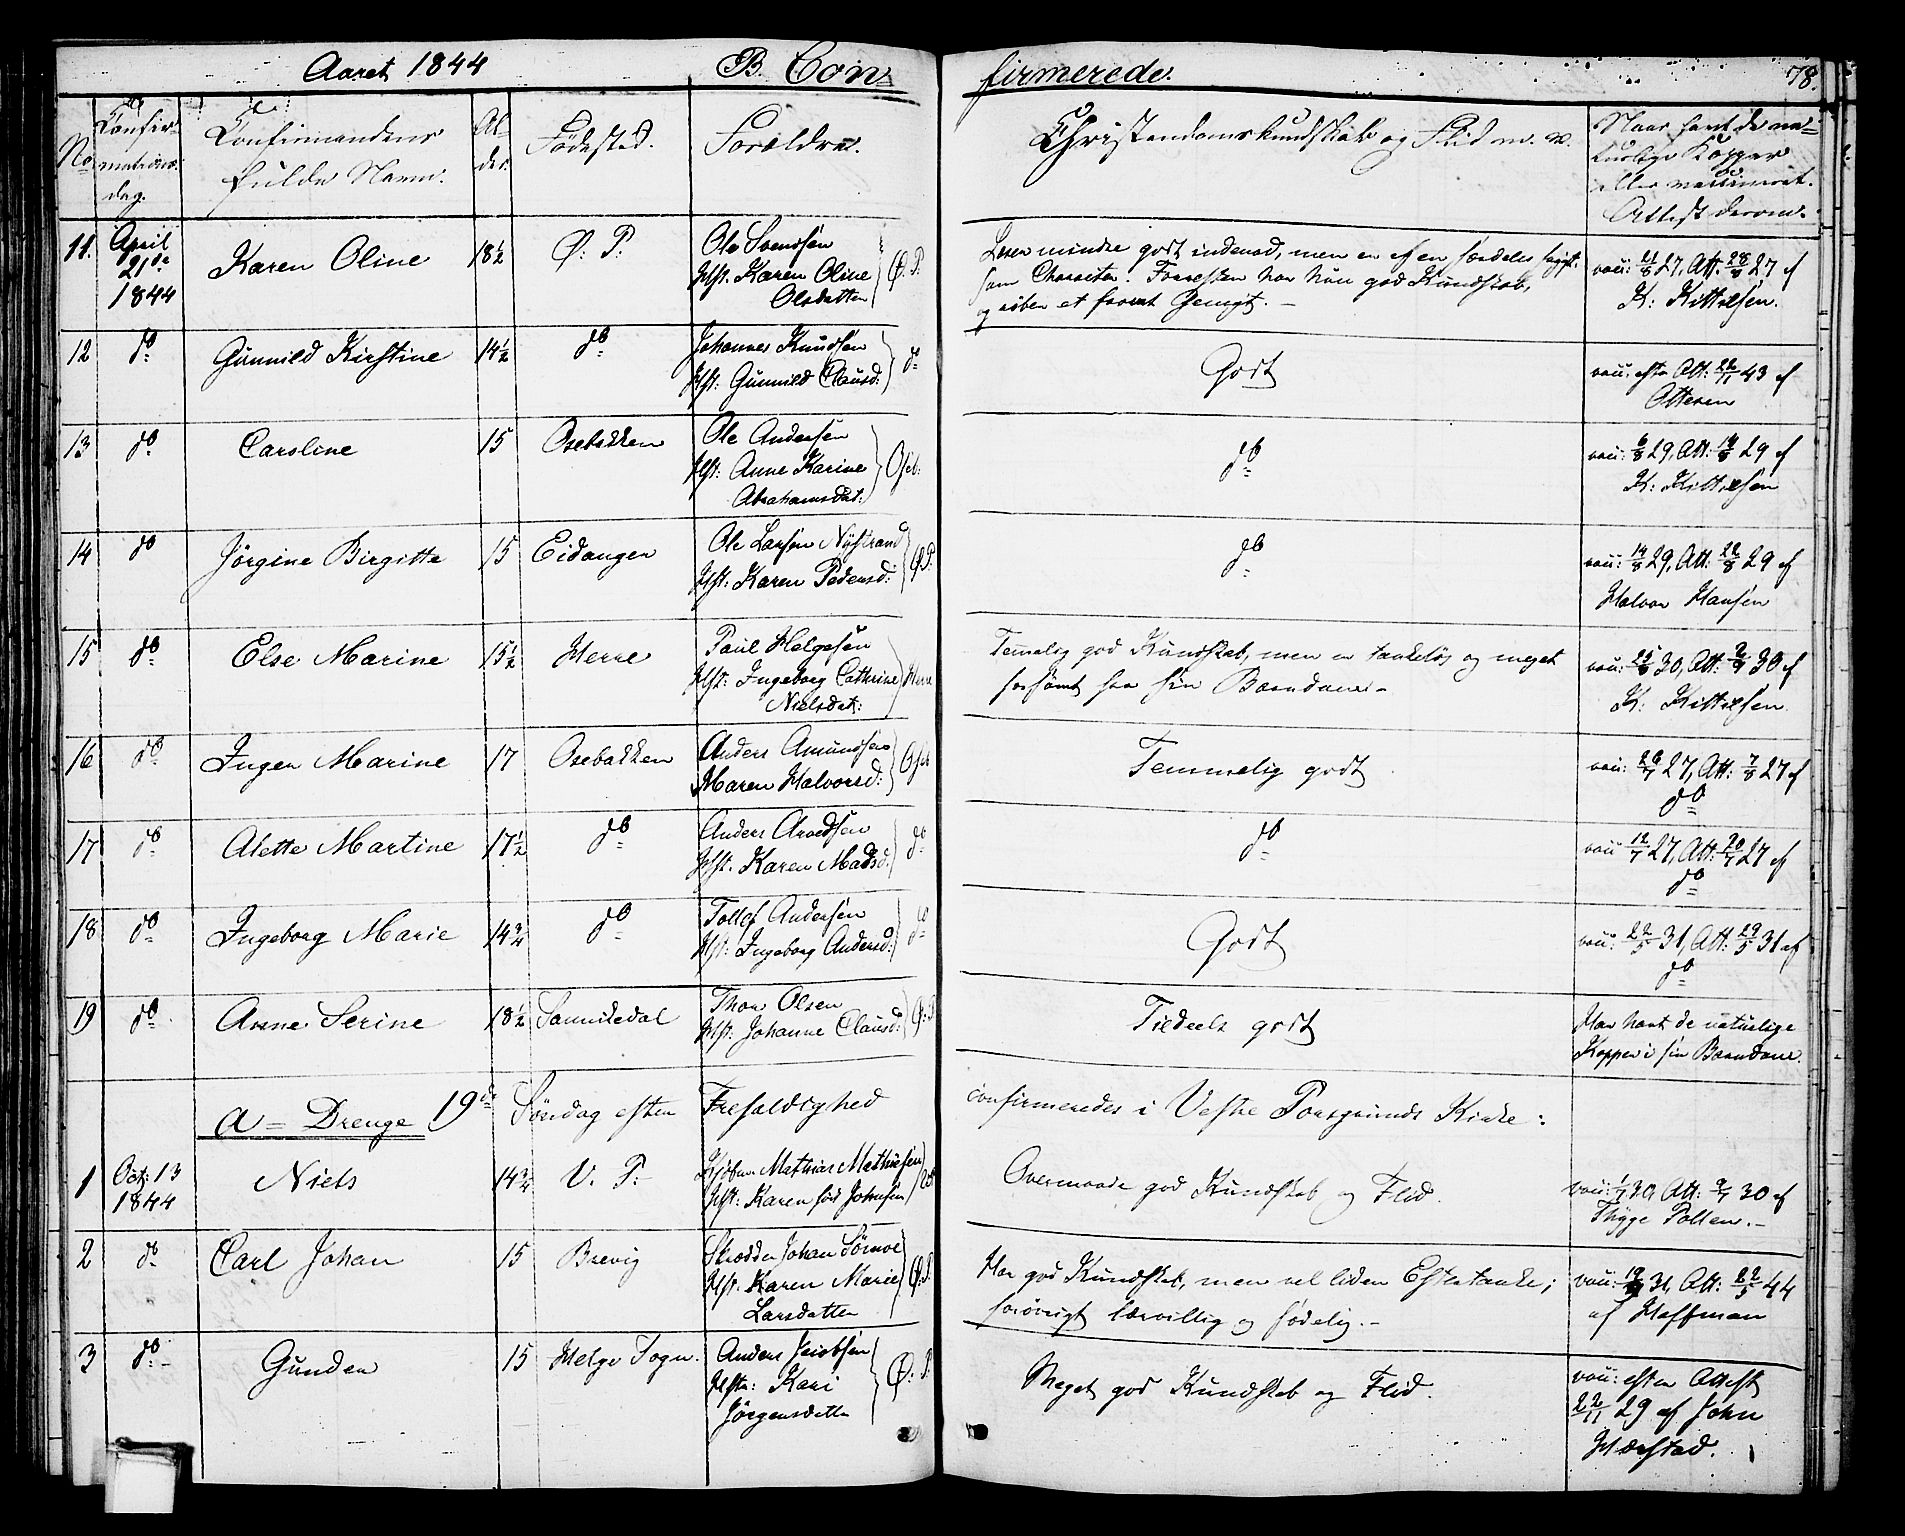 Aaret 1844 B. Confirmerede. 78.
No Confirmations dag. Confirmandens fulde Navn. Alder. Fødested. Forældre. Christendomskundskab og Flid m. v. Naar havt de naturlige Kopper eller vaccineret. Attest derom.
11. April 21de 1844 Karen Oline 18½ Ø: P: Ole Svendsen Hst: Karen Oline Olsdatter Ø: P:
Læser mindre godt indenad, men er af en særdeles
som Character. Forresten har hun god Kundskab,
og røber et fromt Gemyt. –
vac: 21/8 27, Att: 28/8 27 af
K: Kittelsen.
12 do Gunnild Kirstine 14½ do Johannes Knudsen Hst: Gunnild Clausd: do Godt vac: efter Att: 22/11 43 af
Ottesen
13 do Caroline 15 Osebakken Ole Andersen Hst: Anne Karine Abrahamsdat: Oseb: do vac: 6/8 29, Att: 14/8 29 af
K: Kittelsen
14 do Jørgine Birgitte 15 Eidanger Ole Larsen Nystrand Hst: Karen Pedersd: Ø: P: do vac: 14/8 29, Att: 22/8 29 af
Halvor Hansen
15 do Else Marine 15½ Herre Paul Helgesen Hst: Ingeborg Cathrine Nielsdat: Herre
Temmelig god Kundskab, men er tankeløs og meget
forsømt fra sin Barndom. –
K: Kittelsen.
16 do Inger Marine 17 Osebakken Anders Amundsen Maren Halvorsd: Oseb Temmelig godt vac: 26/7 27, Att: 7/8 27 af
do
17 do Alette Martine 17½ do Anders Arvedsen Hst. Karen Madsd: do do vac: 12/7 27, Att: 20/7 27 af
do
18 do Ingeborg Marie 14¾ do Tollef Andersen Hst: Ingeborg Andersd: do Godt vac: 22/5 31, Att: 29/5 31 af
do
19 do Anne Serine 18½ Sannikedal Thor Olsen Hst: Johanne Clausd: Ø: P Tildeels godt Har havt de naturlige
Kopper i sin Barndom.
a = Drenge 19de Søndag efter Trefoldighed confirmeredes i Vestre Porsgrunds Kirke:
1 Oct: 13 1844 Niels 14¾ V. P: Mathias Mathiesen Hst: Karen født Johnsen Overmaade god Kundskab og Flid. vac: 1/7 30, Att: 9/7 30 af
Thygge Polsen. –
2 do Carl Johan 15 Brevig Skrædder Johan Hst: Karen Marie Larsdatter Ø: P.
Har god Kundskab, men vel liden Eftertanke;
forøvrigt lærvillig og sædelig. –
Att: 22/5 44
af Hoffman
3 do – Gunder 15 Helge Sogn. Anders Jacobsen Hstr: Kari Jørgensdatter Ø: P. Meget god Kundskab og Flid. vac: efter Attest
22/11 29 af John